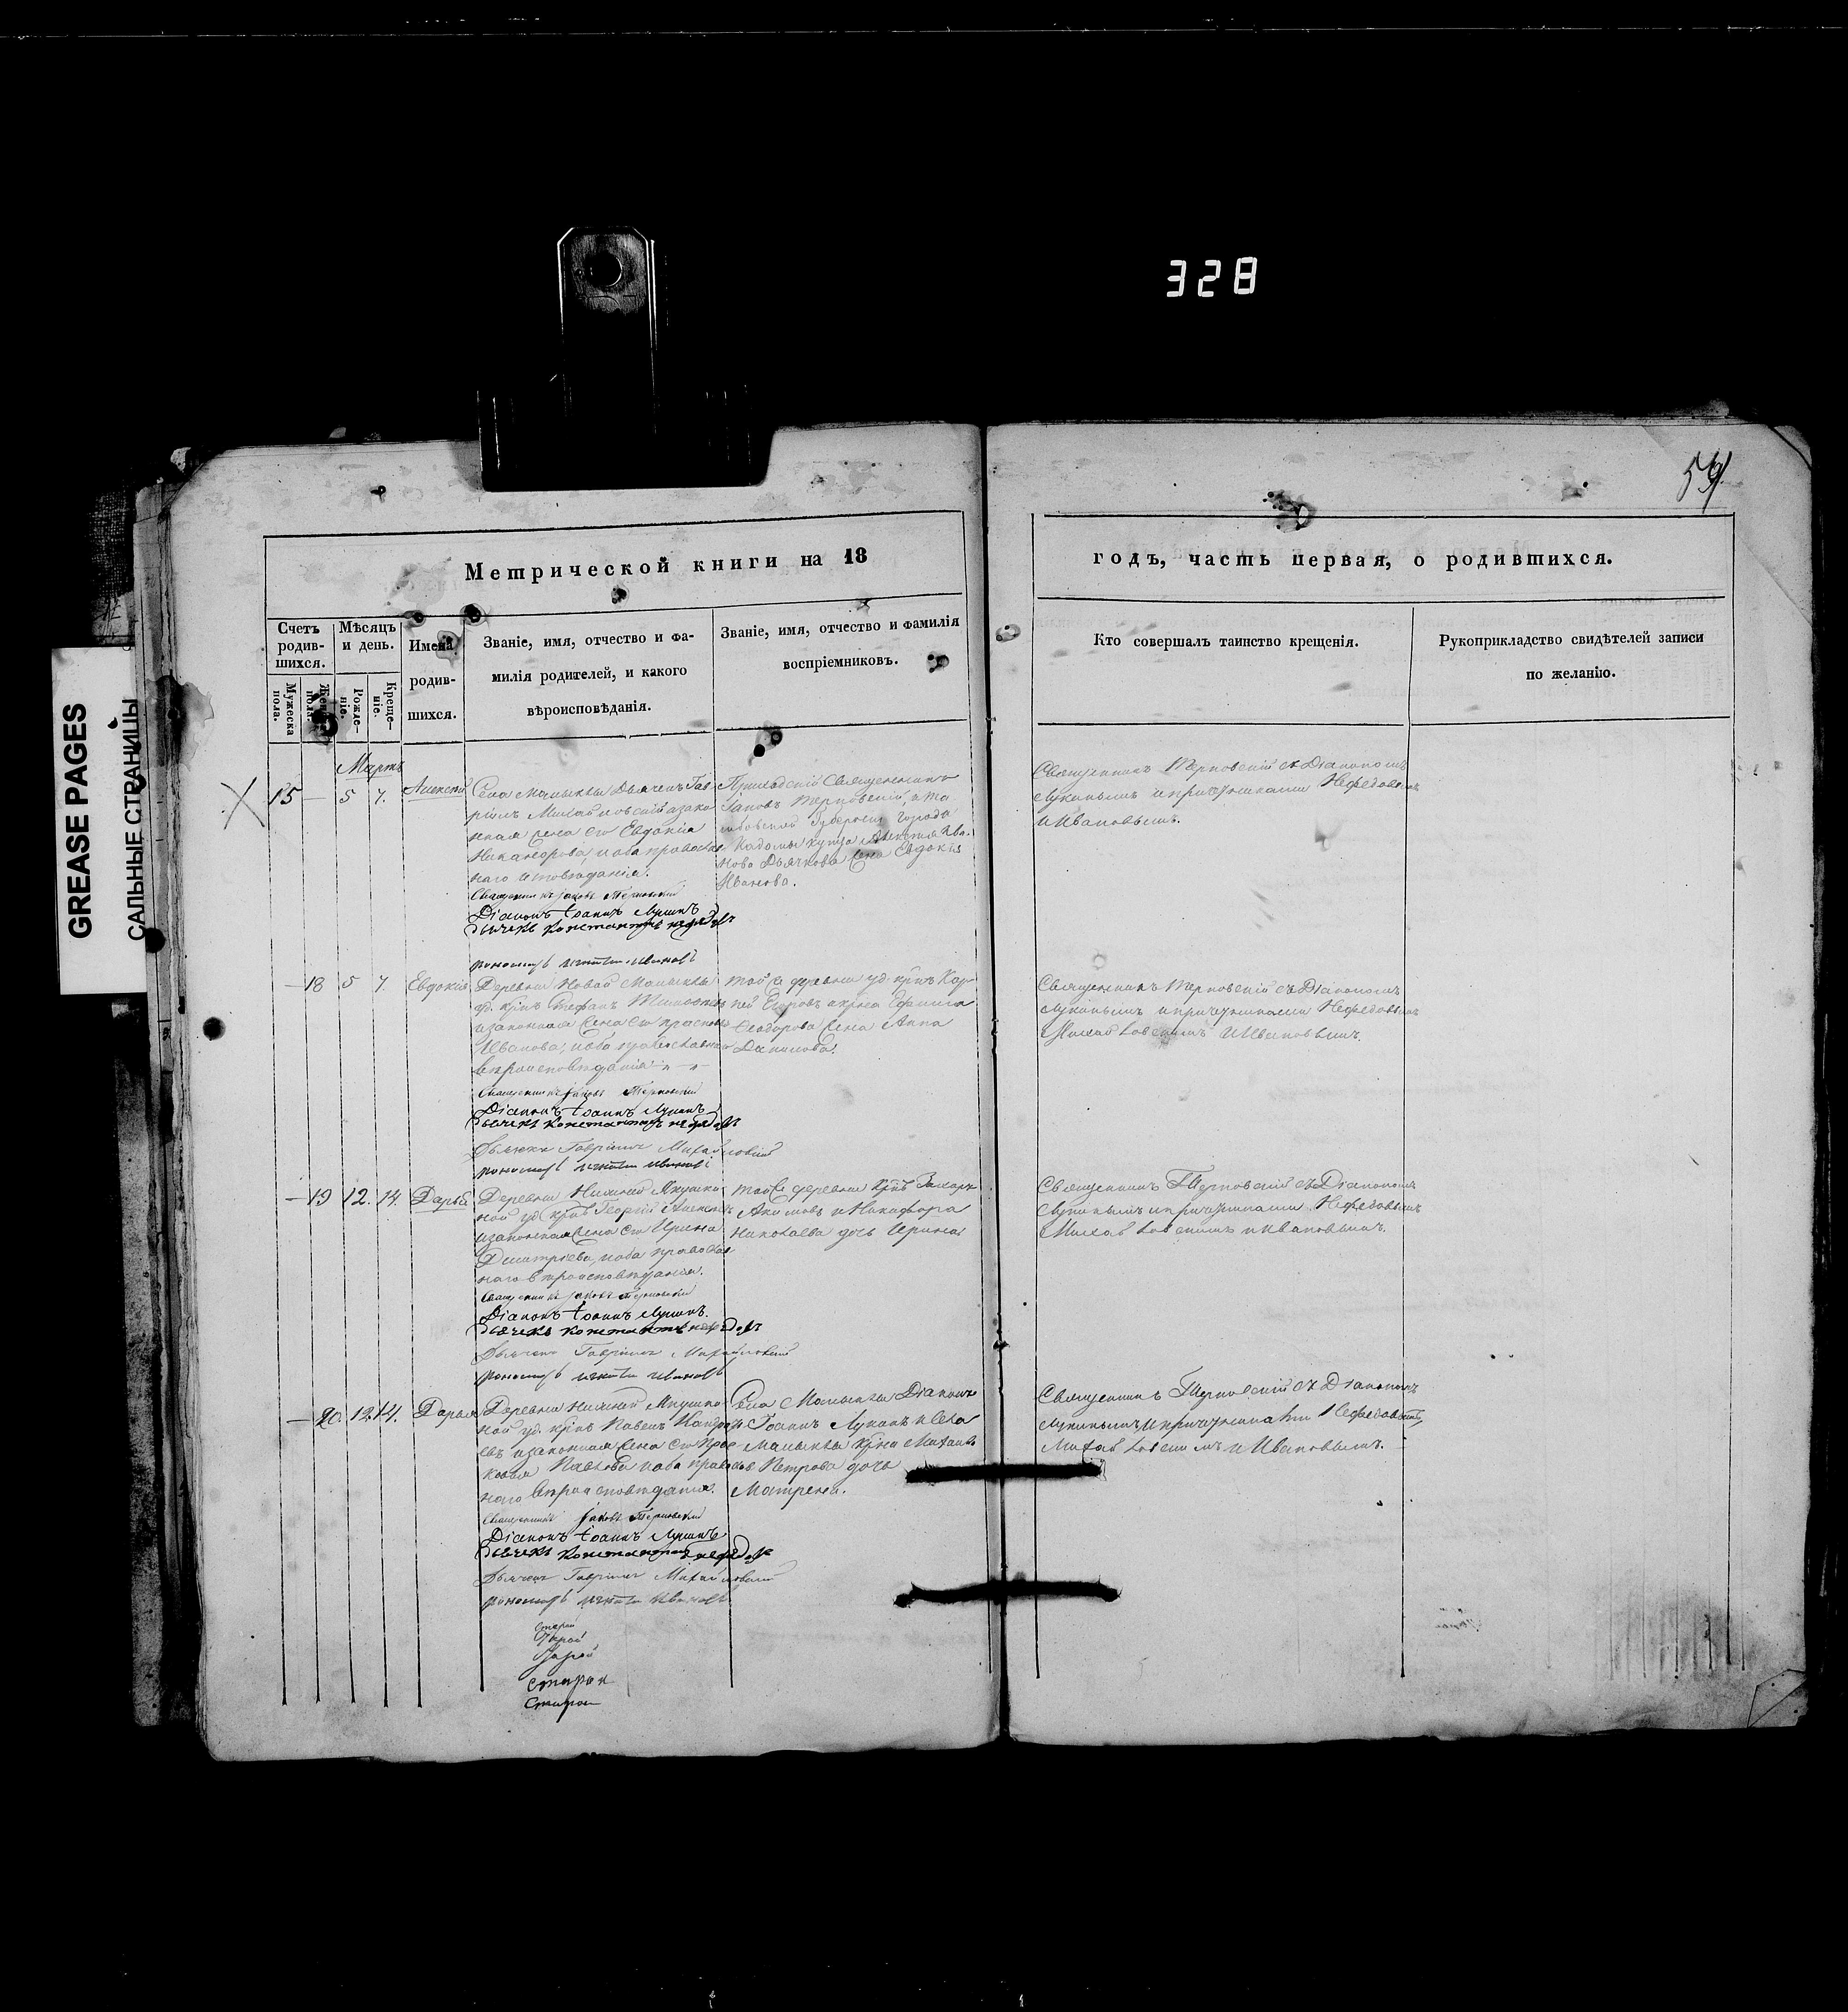 328
GREASE PAGES
САЛЬНЫЕ СТРАНИЦЫ
59
Метрической книги на 18
годъ, часть первая, о родившихся.
Счетъ родив-шихся.
Мужеска пола.
Женска пола.
Мѣсяцъ и день.
Рожде-ніе.
Креще-ніе.
Имена
родив-
шихся.
Званіе, имя, отчество и фа-
милія родителей, и какого
вѣроисповѣданія.
Званіе, имя, отчество и фамилія
воспріемниковъ.
Кто совершалъ таинство крещенія.
Рукоприкладство свидѣтелей записи
по желанію.
Мартъ
15 — 5 7. Алексѣй
Села Мамыквы Дьячекъ Гав-
ріилъ Михайловскій и зако-
нная жена его Евдокія
Никанорова, и оба православ
наго исповѣданія.
Священникъ Іаковъ Терновскій
Діаконъ Іоаннъ Лукинъ
Дьячекъ Константинъ Нефедовъ
пономарь Ивановъ
Приходскій Священникъ
Іаковъ Терновскій, и Та-
мбовской Губерніи города
Кадомы купца Алексѣя Ива-
нова Дьячкова жена Евдокія
Иванова.
Священникъ Терновскій съ Діакономъ
Лукинымъ и причетниками Нефедовымъ
и Ивановымъ.
— 18 5 7. Евдокія
Деревни Новой Мамыквы
уд. крѣн. Стефанъ
и законная жена его
Иванова, и оба православнаго
вѣроисповѣданія.
Священникъ Іаковъ Терновскій
Діаконъ Іоаннъ Лукинъ
Дьячекъ Константинъ Нефедовъ
Дьячекъ Гавріилъ Михайловскій
пономарь Ивановъ
Той же деревни уд. крѣн. Кор-
ней Егоровъ и крѣна Ефима
Ѳеодорова жена Анна
Данилова.
Священникъ Терновскій съ Діакономъ
Лукинымъ и причетниками Нефедовымъ
Михайловскимъ и Ивановымъ.
— 19 12. 14. Дарья
Деревни Нижней Якушки-
ной уд. крѣн. Георгій Алексѣевъ
и законная жена его Ирина
Дмитріева, и оба православ
наго вѣроисповѣданія.
Священникъ Іаковъ Терновскій
Діаконъ Іоаннъ Лукинъ.
Дьячекъ Константинъ Нефедовъ
Дьячекъ Гавріилъ Михайловскій
пономарь Ивановъ
Той же деревни крѣн. Захаръ
Акимовъ и Никифора
Николаева дочь Ирина
Священникъ Терновскій съ Діакономъ
Лукинымъ и причетниками Нефедовымъ
Михайловскимъ и Ивановымъ.
— 20. 12. 14. Дарья
Деревни Нижней Якушки-
ной уд. крѣн. Павелъ
евъ и законная жена его Прас-
ковья Павлова и оба православ
наго вѣроисповѣданія.
Священникъ Іаковъ Терновскій
Діаконъ Іоаннъ Лукинъ
Дьячекъ Константинъ Нефедовъ
Дьячекъ Гавріилъ Михайловскій
пономарь Ивановъ
Села Мамыквы Діаконъ
Іоаннъ Лукинъ и Села
Мамыквы крѣна Михаила
Петрова дочь
Матрена.
Священникъ Терновскій съ Діакономъ
Лукинымъ и причетниками Нефедовымъ,
Михайловскимъ и Ивановымъ.